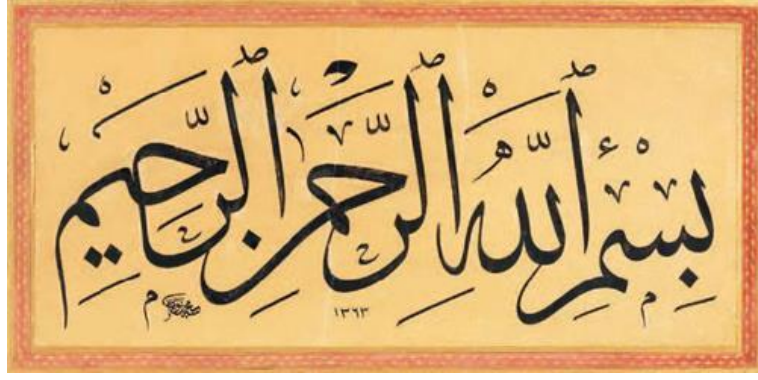 بِسْمِ ٱللَّٰهِ ٱلرَّحْمَٰنِ ٱلرَّحِيمِ
١٣٦٣